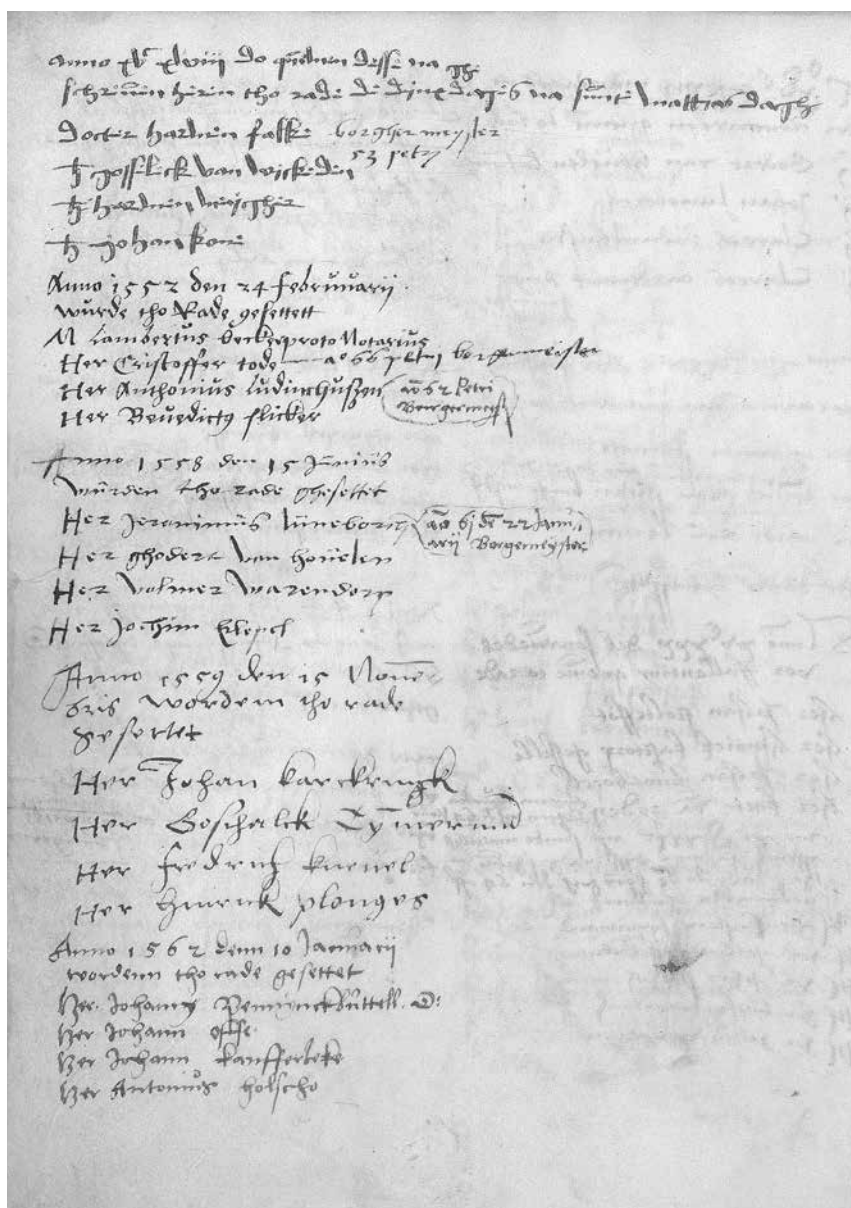 anno xv^c xlviij do quemen desse na gh
schreuen heren tho rade de dinxdages na sunte mattias daghe
Docter hermen falke borghermeyster
53 petry
h gosslick van wickeden
h hermen
h johan kone
Anno 1552 den 24 februuarij
wurde tho Rade gesettett
M Lambertus Becker protoNotarius
Her Cristoffer tode ao 66 petri borgermeister
Her Anthonius Ludinchuszen ao 62 Petri
Borgermeyst
Her Benedictus slicker
Anno 1558 den 15 Junius
wurden tho rade ghesettet
Her Jeronimus Luneborg ao 61 den 22 Janu
arij Borgemeyster
Her ghodert van houelen
Her volmer warendorp
Her Jochim
Anno 1559 den 15 Noue
bris wordenn tho rade
gesettet
Her Johan karckringk
Her Goschalck Tymerman
Her frederick kneuel
Her hinrick plonges
Anno 1562 denn 10 Januarij
wordenn tho rade gesettet
Her Johannes Penninckbuttell D:
Her Johann
Her Johann kampferbeke
Her Antonius holscho